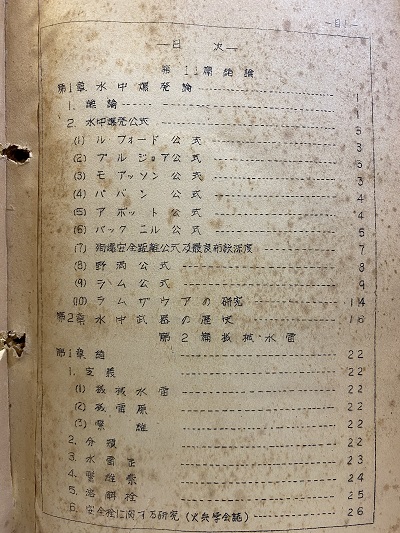 —目1—
—目 次—
第1篇総論
第1章水中爆発論 1
1. 総論 1
2. 水中爆発公式 3
(1) ルフォード公式 3
(2) ブルジョア公式 3
(3) モアッソン公式 3
(4) パバン 公式 4
(5) アボット公式 4
(6) バックニル公式 5
(7) 安全距離公式及最良布設深度 7
(8) 野満公式 8
(9) ラム公式 9
(10) ラムザウアの研究 14
第2章水中武器の歴史 16
第2篇機械水雷
第1章総 22
1. 定義 22
(1) 機械水雷 22
(2) 機雷原 22
(3) 繋維 22
2. 分類 22
3. 水雷 23
4. 繋維索 24
5. 溶解栓 25
6. 安全栓に関する研究(火兵学会誌) 26